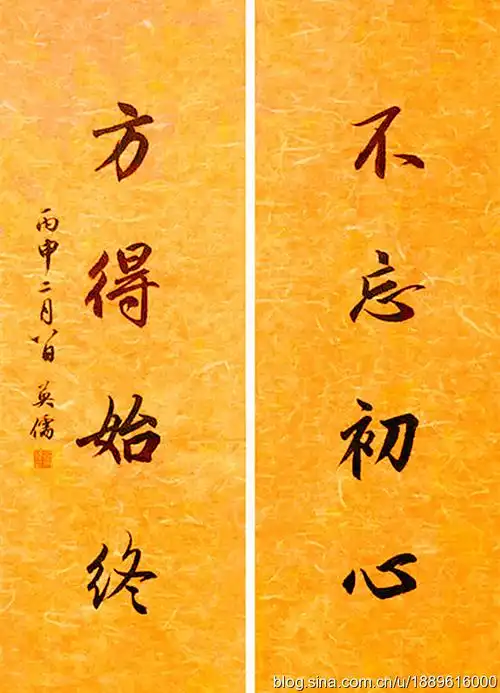 不忘初心
方得始终
丙申二月八日 英儒
blog.sina.com.cn/u/1889616000